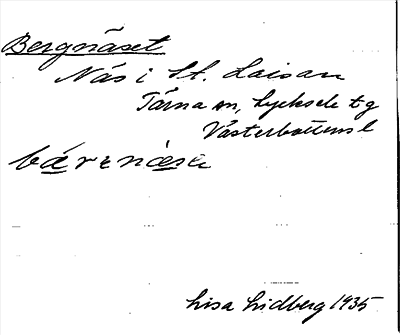 Bergnäset
Näs i St. Laisan
Tärna sn, Lycksele tg
Västerbottens l
Lisa Lidberg 1935